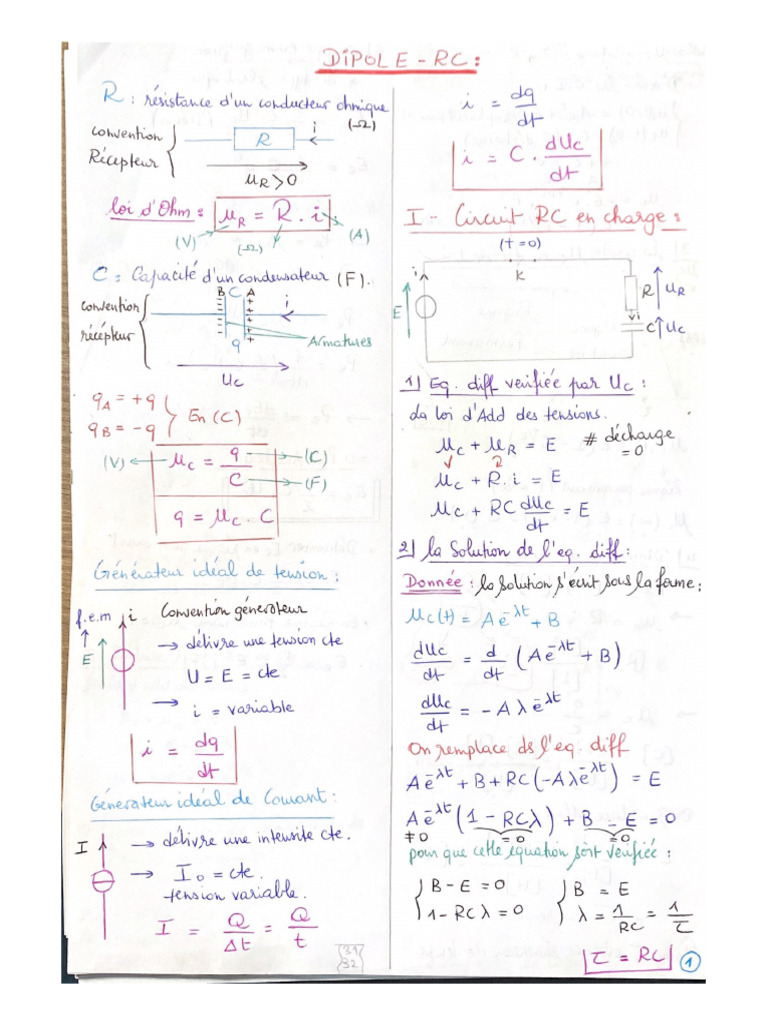 DIPOLE-RC :
R : résistance d'un conducteur ohmique
(Ω)
convention
Récepteur
R
i
u_R > 0
loi d'Ohm : u_R = R . i
(V) (Ω) (A)
C : Capacité d'un condensateur (F).
convention
récépteur
B C A
i
q
Armatures
u_C
q_A = +q
q_B = -q
En (C)
(V) u_C = q/C (C)
(F)
q = u_C C
Générateur idéal de tension :
f.e.m
i
E
Convention générateur
→ délivre une tension cte
U = E = cte
→ i = variable
i = dq/dt
Générateur idéal de Courant :
I
→ délivre une intensité cte.
→ I_0 = cte.
tension variable.
I = Q/Δt = Q/t
31
32
i = dq/dt
i = C . dU_C/dt
I - Circuit RC en charge :
(t=0)
K
i
E
R
u_R
i
C
u_C
1) Eq. diff verifiée par U_C :
La loi d'Add des tensions.
u_C + u_R = E
# décharge
= 0
u_C + R . i = E
u_C + RC dU_C/dt = E
2) la Solution de l'eq. diff :
Donnée : la solution s'écrit sous la forme :
u_C(t) = A e^-λt + B
dU_C/dt = d/dt (A e^-λt + B)
dU_C/dt = -A λ e^-λt
On remplace ds l'eq. diff
A e^-λt + B + RC (-A λ e^-λt) = E
A e^-λt (1 - RCλ) + B - E = 0
≠0 =0 =0
pour que cette équation soit verifiée :
B - E = 0
1 - RC λ = 0
B = E
λ = 1/RC = 1/τ
τ = RC
1